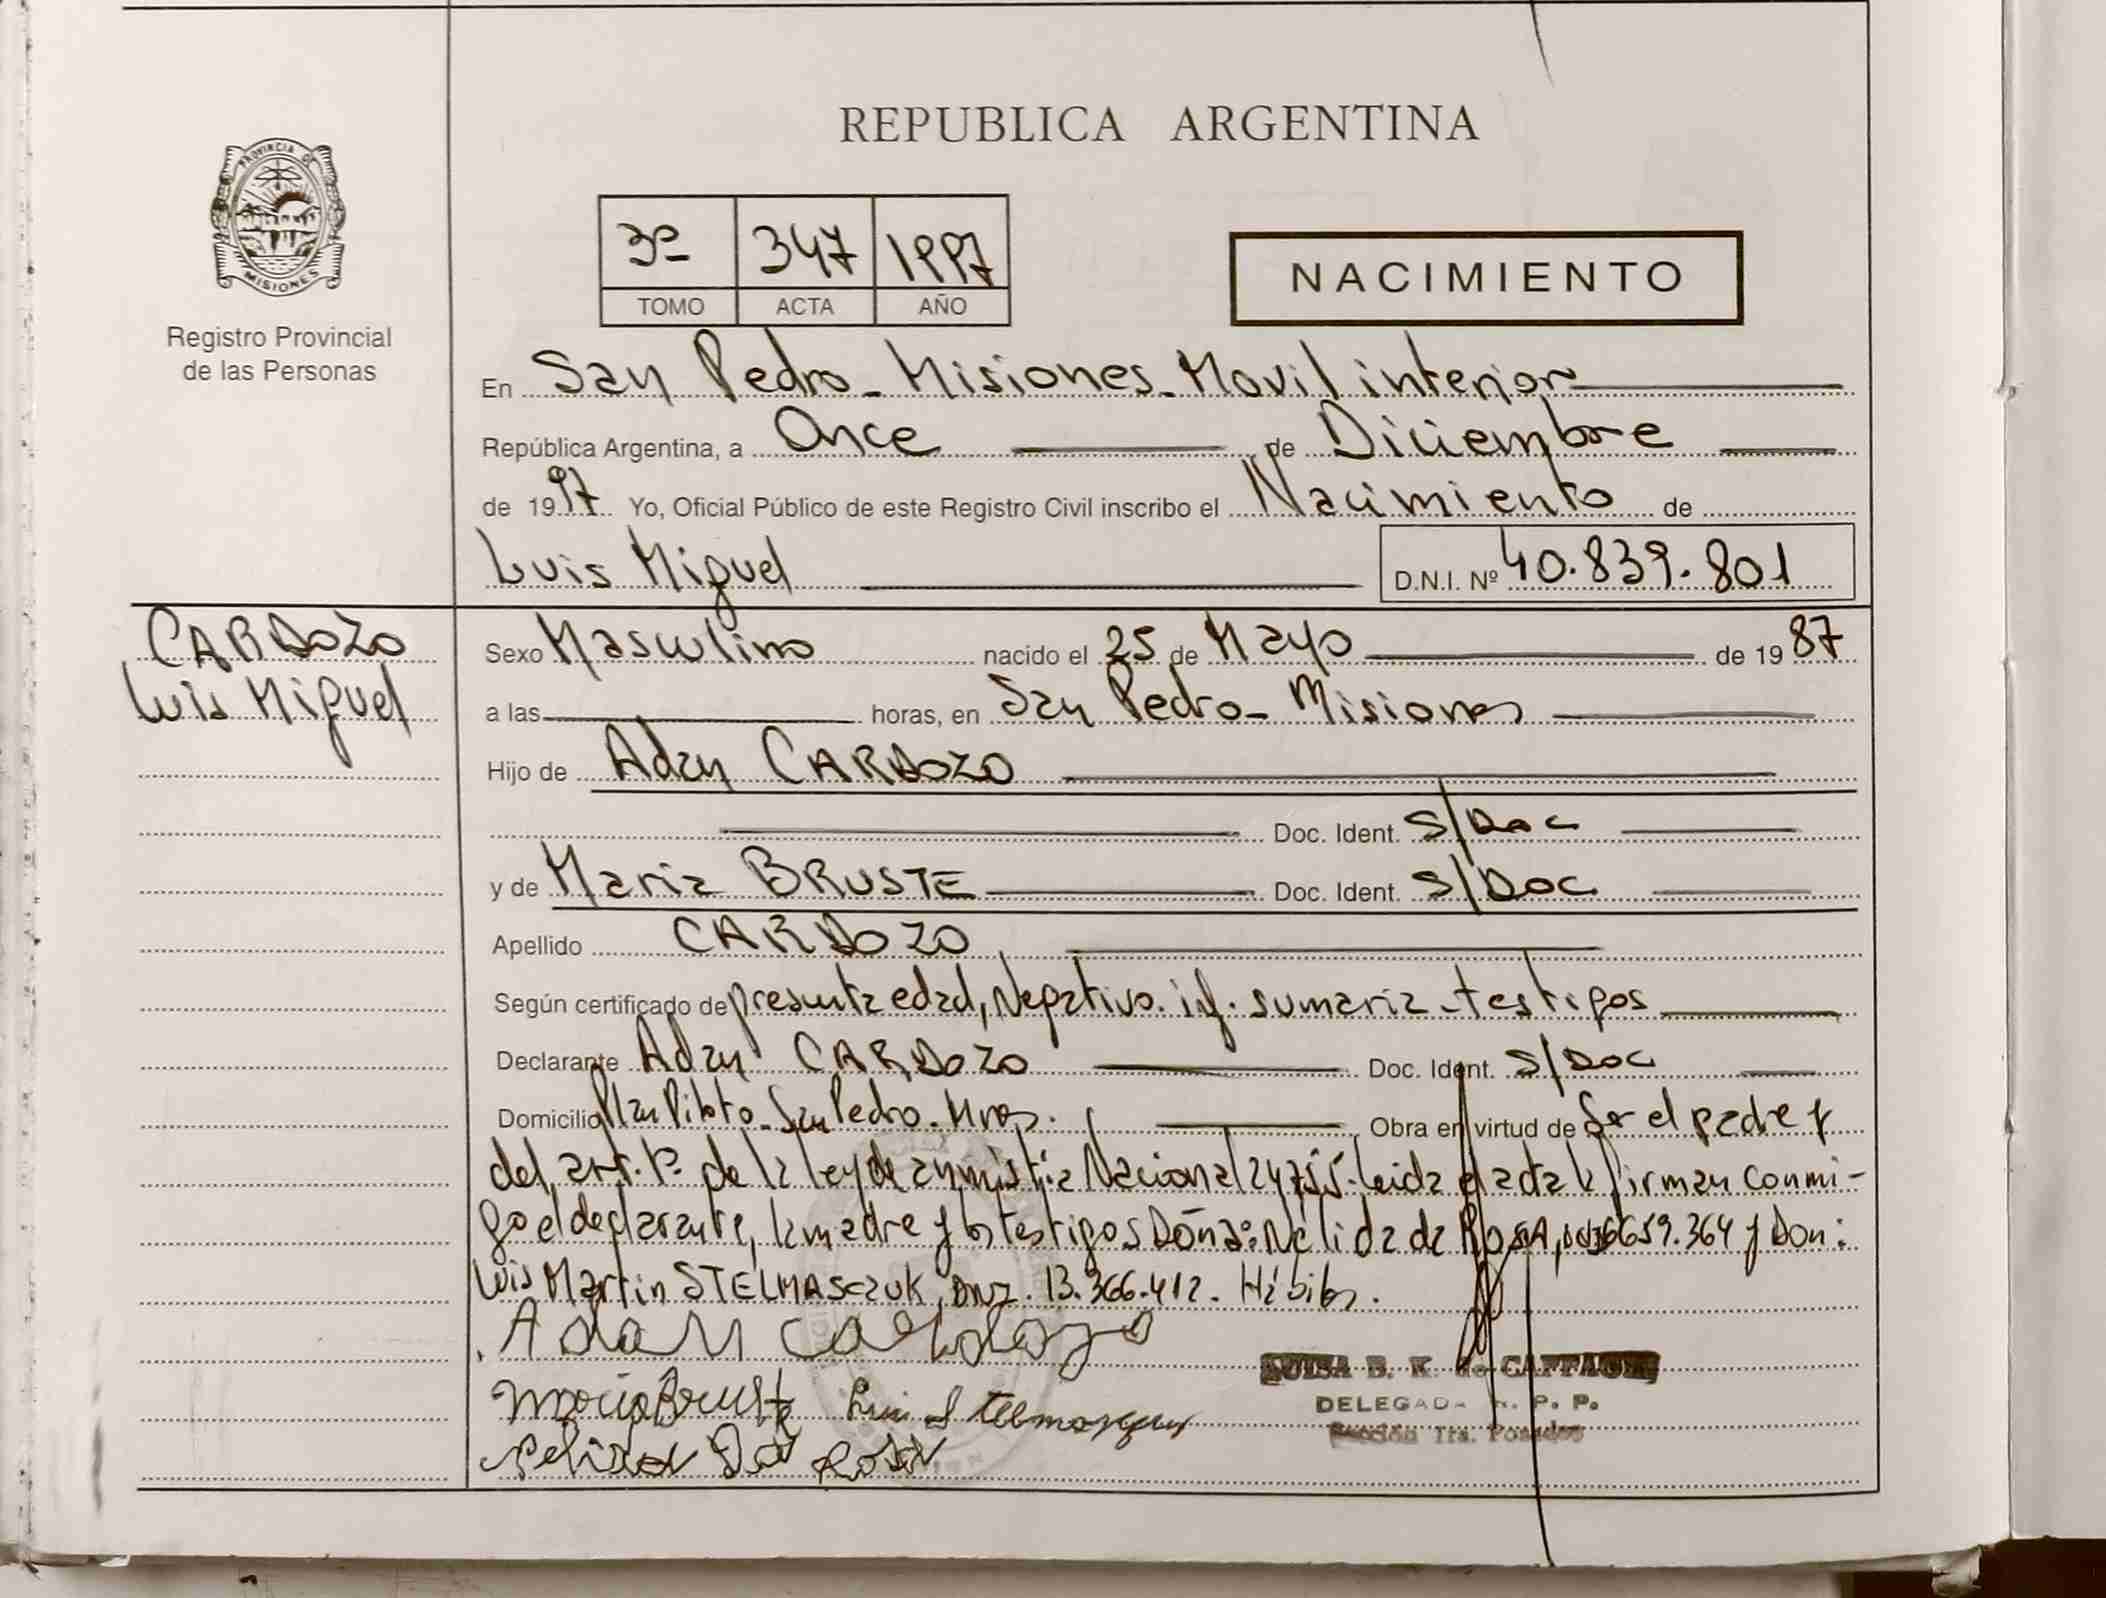 REPUBLICA ARGENTINA
PROVINCIA DE
MISIONES
Registro Provincial
de las Personas
3º 347 1997
TOMO ACTA AÑO
NACIMIENTO
En San Pedro - Misiones - Movil interior
República Argentina, a Once de Diciembre
de 1997 Yo, Oficial Público de este Registro Civil inscribo el Nacimiento de
Luis Miguel D.N.I. Nº 40.839.801
CARDOZO
Luis Miguel
Sexo Masculino nacido el 25 de Mayo de 1987
a las horas, en San Pedro - Misiones
Hijo de Adan CARDOZO
Doc. Ident. S/Doc
y de Maria BRUSTE Doc. Ident. S/Doc.
Apellido CARDOZO
Según certificado de presunta edad, Negativo. inf. sumaria - testigos
Declarante Adan CARDOZO Doc. Ident. S/Doc
Domicilio Plan Piloto - San Pedro - Mnes. Obra en virtud de Ser el padre y
del art. 1º de la ley de amnistia Nacional 24755. leida el acta la firman conmi-
go el declarante, la madre y los testigos Doña: Nelida da ROSA, 6659.364 y Don:
Luis Martin STELMASCZUK, DNI. 13.366.412. Hábiles.
Adan Cardozo
Maria Bruste Luis Stelmaszuk
Nelida Da Rosa
LUISA B. K. de CAFFARO
DELEGADA R. P. P.
Sección 1ra. Posadas